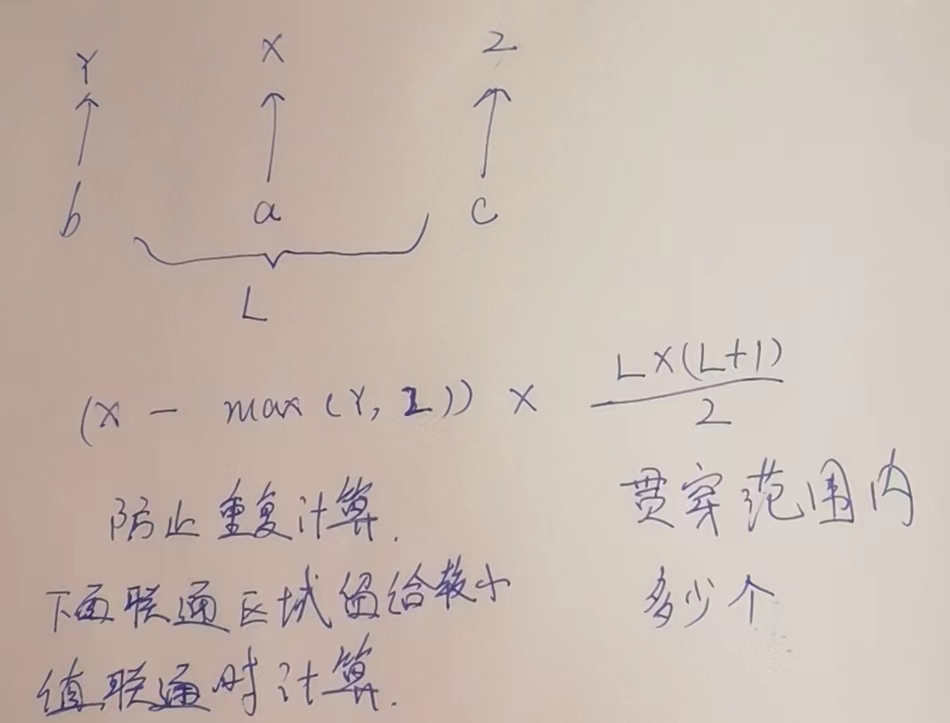 Y X Z
b a c
L
(X - max(Y, Z)) × L×(L+1)/2
防止重复计算. 贯穿范围内
下面联通区域留给较小 多少个
值联通时计算.